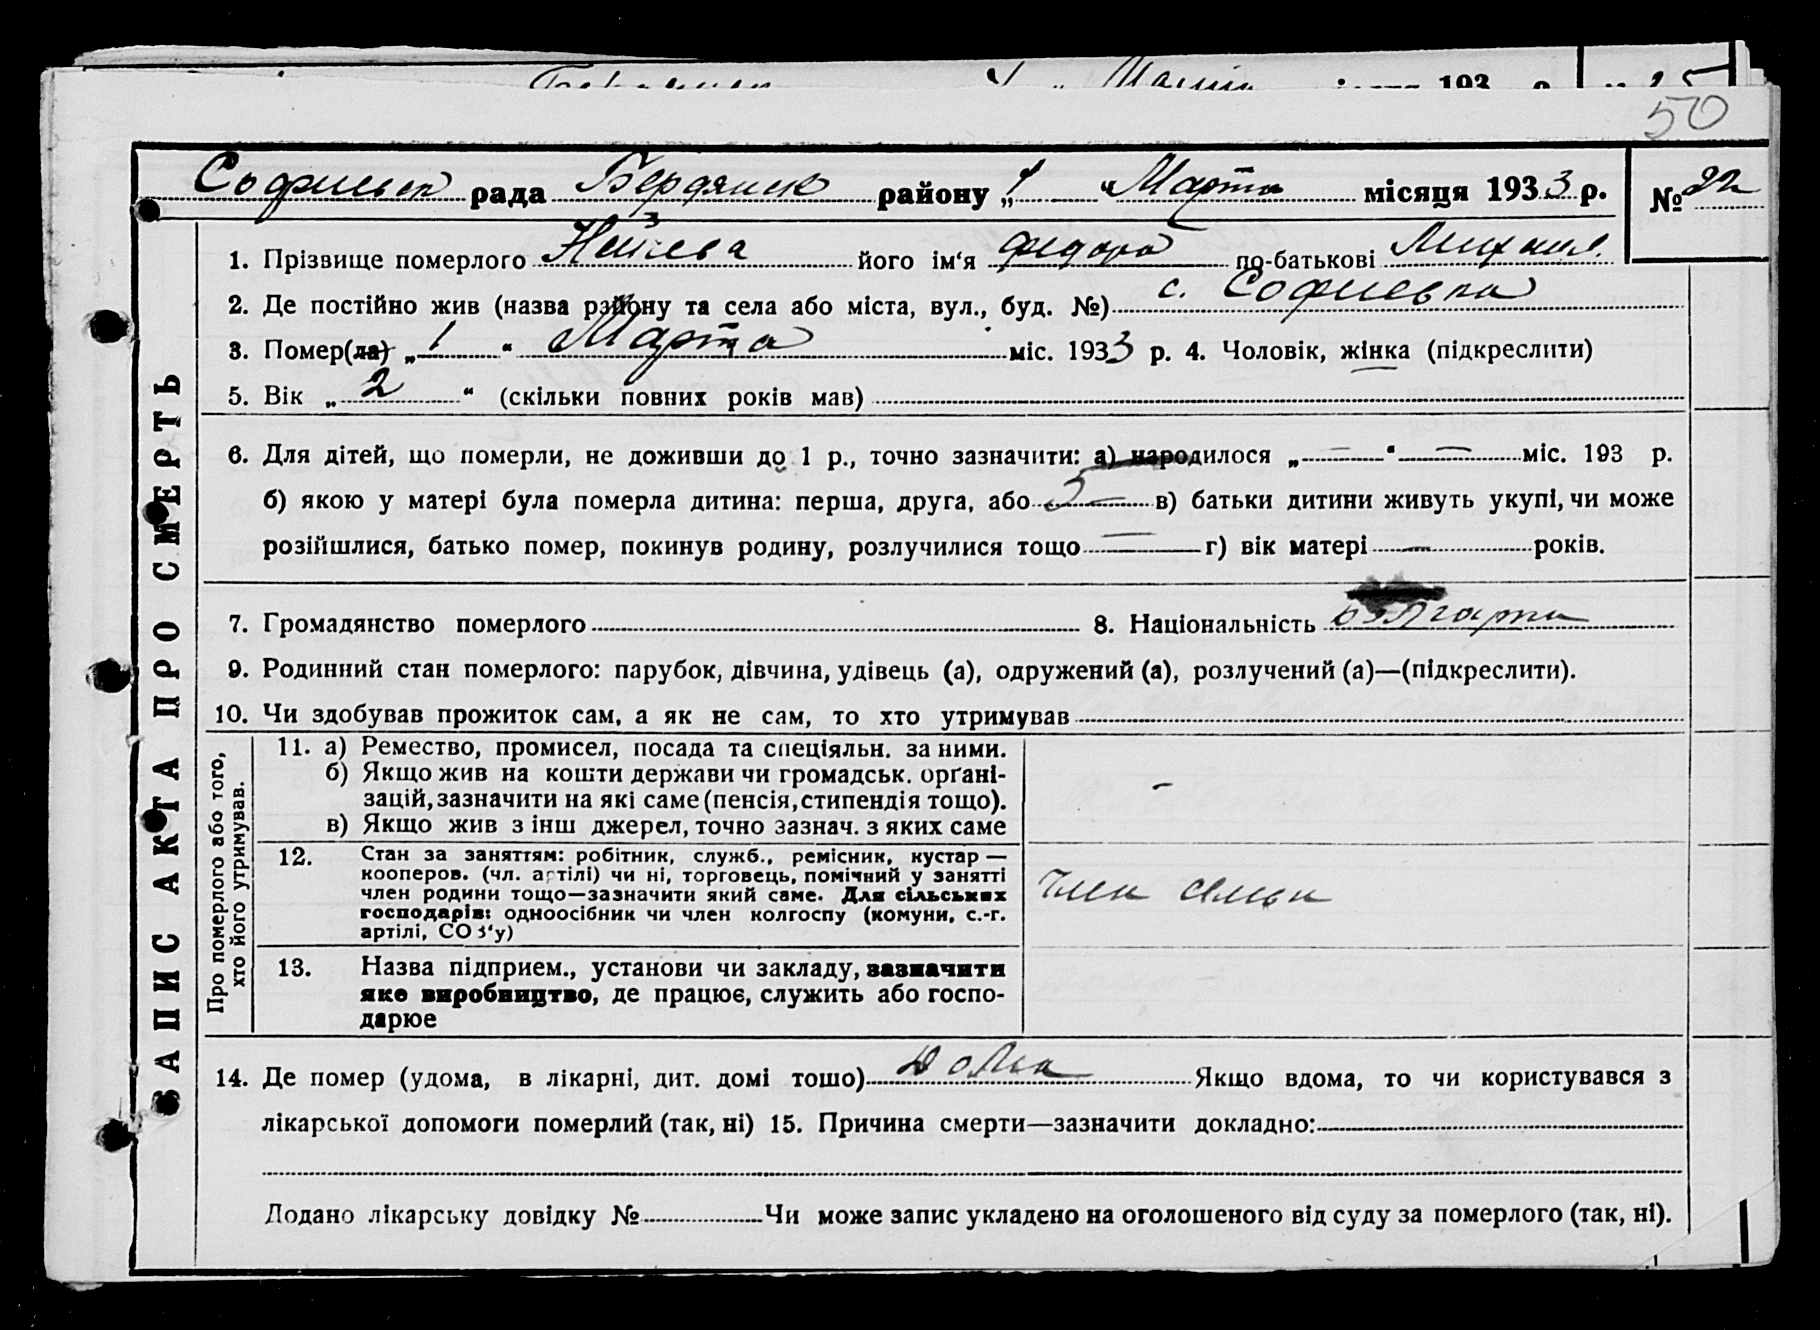 50
Софиевск рада Бердянск району „1“ Марта місяця 1933 р. № 22
1. Прізвище померлого його ім‘я Федора по-батькові Михаил.
2. Де постійно жив (назва району та села або міста, вул., буд. №) с. Софиевка
3. Помер(ла) „1“ Марта міс. 1933 р. 4. Чоловік, жінка (підкреслити)
5. Вік „2“ (скільки повних років мав)
6. Для дітей, що померли, не доживши до 1 р., точно зазначити: а) народилося „—“ — міс. 193 р.
б) якою у матері була померла дитина: перша, друга, або — в) батьки дитини живуть укупі, чи може
розійшлися, батько помер, покинув родину, розлучилися тощо — г) вік матері — років.
7. Громадянство померлого 8. Національність
9. Родинний стан померлого: парубок, дівчина, удівець (а), одружений (а), розлучений (а)—(підкреслити).
10. Чи здобував прожиток сам, а як не сам, то хто утримував
ЗАПИС АКТА ПРО СМЕРТЬ
Про померлого або того,
хто його утримував.
11. а) Ремество, промисел, посада та спеціяльн. за ними.
б) Якщо жив на кошти держави чи громадськ. орґані-
зацій, зазначити на які саме (пенсія, стипендія тощо).
в) Якщо жив з інш джерел, точно зазнач. з яких саме
-
12. Стан за заняттям: робітник, служб., ремісник, кустар —
кооперов. (чл. артілі) чи ні, торговець, помічний у занятті
член родини тощо—зазначити який саме. Для сільських
господарів: одноосібник чи член колгоспу (комуни, с.-г.
артілі, СОЗ‘у)
член семьи
13. Назва підприєм., установи чи закладу, зазначити
яке виробництво, де працює, служить або госпо-
дарює
14. Де помер (удома, в лікарні, дит. домі тошо) дома Якщо вдома, то чи користувався з
лікарської допомоги померлий (так, ні) 15. Причина смерти—зазначити докладно:
Додано лікарську довідку № Чи може запис укладено на оголошеного від суду за померлого (так, ні).